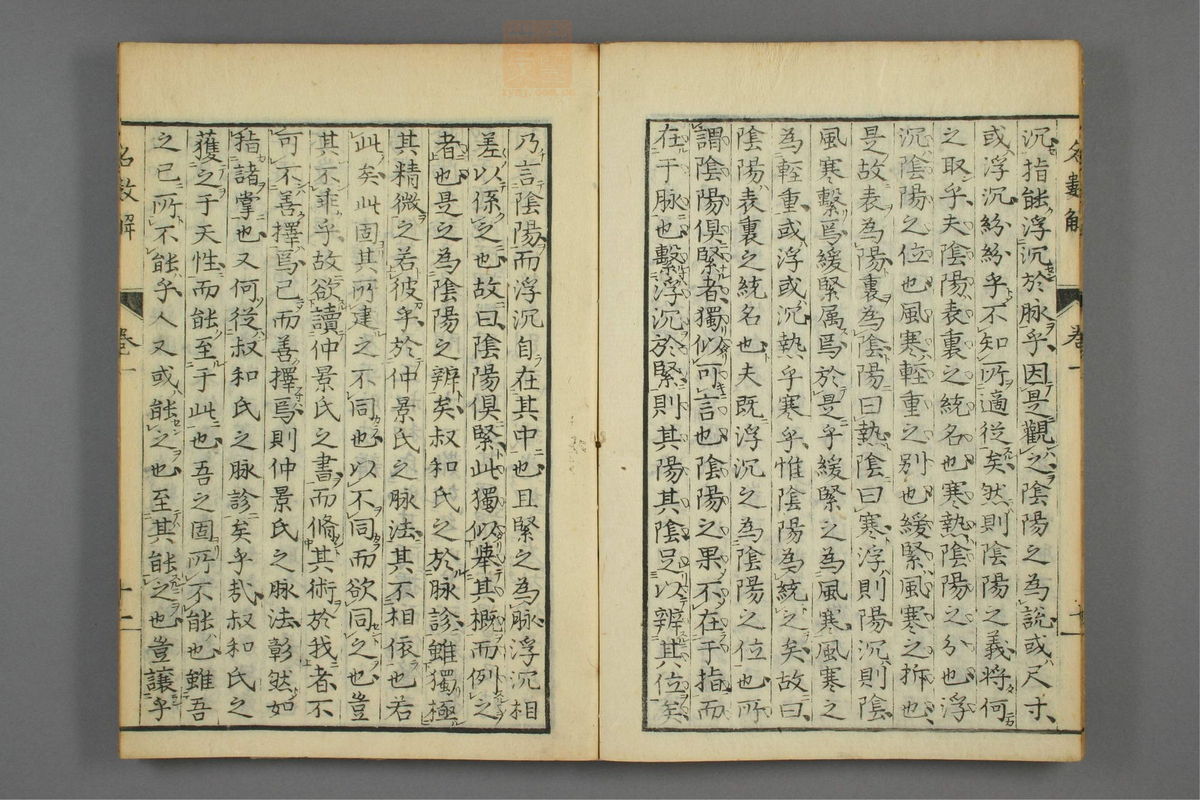 沉指能浮沉於脉乎因是觀之陰陽之為説或尺寸
或浮沉紛紛乎不知所適從矣然則陰陽之義將何
之取乎夫陰陽表裏之統名也寒熱陰陽之分也浮
沉陰陽之位也風寒輕重之別也緩緊風寒之拆也
是故表為陽裏為陰陽曰熱陰曰寒浮則陽沉則陰
風寒繫焉緩緊属焉於是乎緩緊之為風寒風寒之
為輕重或浮或沉熱乎寒乎惟陰陽為統之矣故曰
陰陽表裏之統名也夫既浮沉之為陰陽之位也所
謂陰陽俱緊者獨似可言也陰陽之果不在于指而
在于脉也繫浮沉於緊則其陽其陰足以辨其位矣
名數解
卷一
十一
乃言陰陽而浮沉自在其中也且緊之為脉浮沉相
差以係之也故曰陰陽俱緊此獨似舉其概而例之
者也是之為陰陽之辨矣叔和氏之於脉診雖獨極
其精微之若彼乎於仲景氏之脉法其不相依也若
此矣此固其所建之不同也以不同而欲同之也豈
其不乖乎故欲讀仲景氏之書而脩其術於我者不
可不善擇焉已而善擇焉則仲景氏之脉法彰然如
指諸掌也又何從叔和氏之脉診矣乎哉叔和氏之
獲之于天性而能至于此也吾之固所不能也雖吾
之已所不能乎人又或能之也至其能之也豈讓乎
名數解
卷一
十一